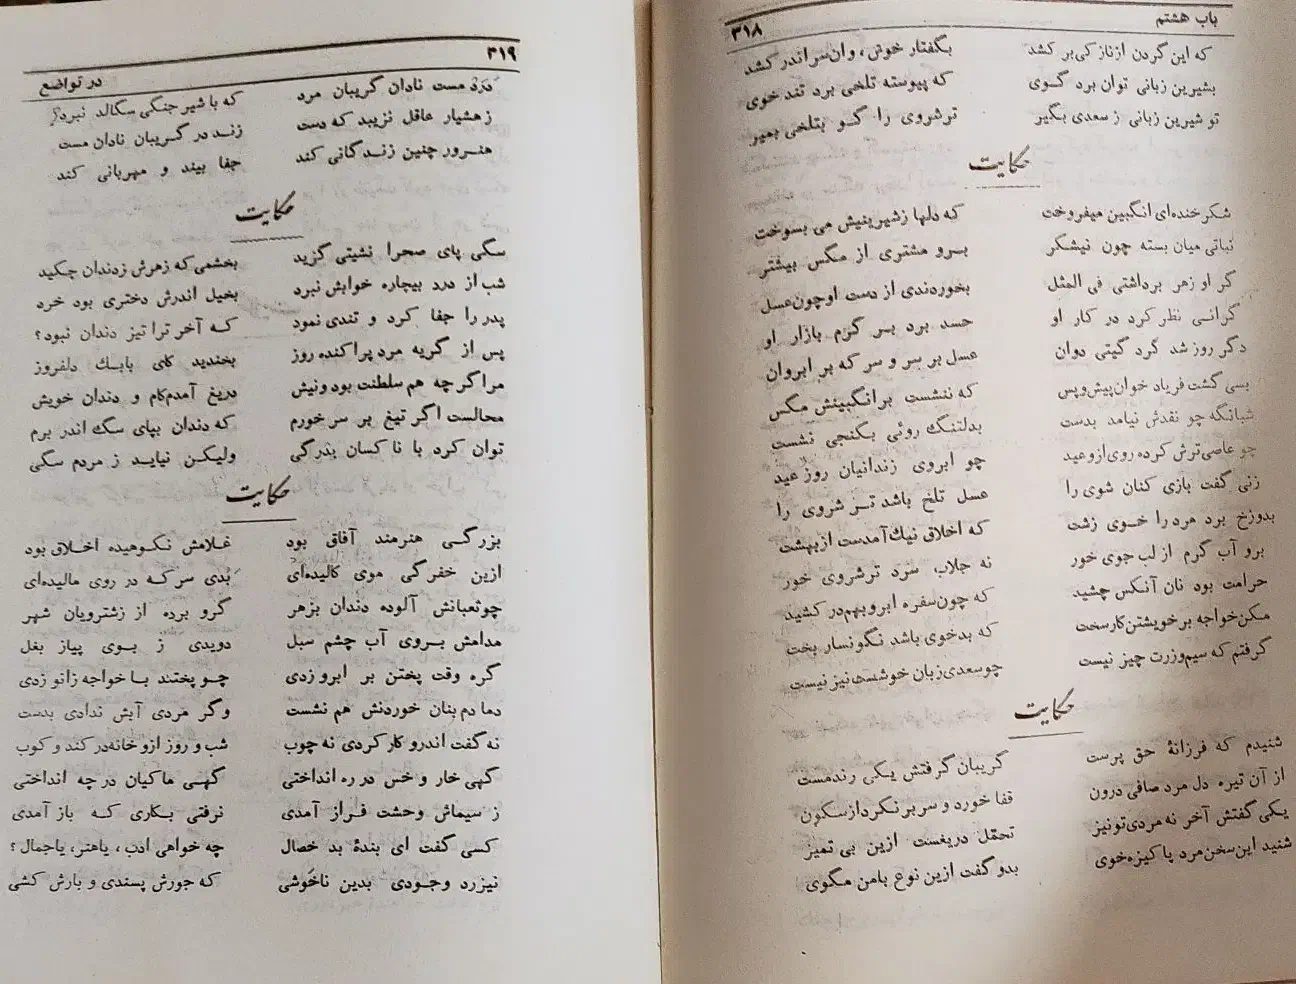 باب هشتم ۳۱۸
که این گردن از نازکی بر کشد بگفتار خوش، وان سر اندر کشد
بشیرین زبانی توان برد گوی که پیوسته تلخی برد تند خوی
تو شیرین زبانی ز سعدی بگیر ترشروی را گو بتلخی بمیر
حکایت
شکر خنده‌ای انگبین میفروخت که دلها زشیرینیش می بسوخت
نباتی میان بسته چون نیشکر برو مشتری از مگس بیشتر
گر او زهر برداشتی فی المثل بخوردندی از دست او چون عسل
گرانی نظر کرد در کار او حسد برد بر گرم بازار او
دگر روز شد گرد گیتی دوان عسل بر سر و سرکه بر ابروان
بسی گشت فریاد خوان پیش و پس که ننشست برانگبینش مگس
شبانگه چو نقدش نیامد بدست بدلتنگ روئی بکنجی نشست
چو عاصی ترش کرده روی از وعید چو ابروی زندانیان روز عید
زنی گفت بازی کنان شوی را عسل تلخ باشد ترشروی را
بدوزخ برد مرد را خوی زشت که اخلاق نیک آمدست از بهشت
برو آب گرم از لب جوی خور نه جلاب سرد ترشروی خور
حرامت بود نان آنکس چشید که چون سفره ابرو بهم در کشید
مکن خواجه بر خویشتن کار سخت که بدخوی باشد نگونسار بخت
گرفتم که سیم وزرت چیز نیست چو سعدی زبان خوشت نیز نیست
حکایت
شنیدم که فرزانهٔ حق پرست گریبان گرفتش یکی رند مست
از آن تیره دل مرد صافی درون قفا خورد و سر بر نکرد از سکون
یکی گفتش آخر نه مردی تو نیز تحمّل دریغست ازین بی تمیز
شنید این سخن مرد پاکیزه خوی بدو گفت ازین نوع با من مگوی
۳۱۹ در تواضع
دَرَد مست نادان گریبان مرد که با شیر جنگی سگالد نبرد؟
ز هشیار عاقل نزیبد که دست زند در گریبان نادان مست
هنرور چنین زندگانی کند جفا بیند و مهربانی کند
حکایت
سگی پای صحرا نشینی گزید بخشمی که زهرش زدندان چکید
شب از درد بیچاره خوابش نبرد بخیل اندرش دختری بود خرد
پدر را جفا کرد و تندی نمود که آخر ترا نیز دندان نبود؟
پس از گریه مرد پراکنده روز بخندید کای بابک دلفروز
مرا گر چه هم سلطنت بود و نیش دریغ آمدم کام و دندان خویش
محالست اگر تیغ بر سر خورم که دندان بپای سگ اندر برم
توان کرد با ناکسان بدرگی ولیکن نیاید ز مردم سگی
حکایت
بزرگی هنرمند آفاق بود غلامش نکوهیده اخلاق بود
ازین خفرگی موی کالیده‌ای بَدی سرکه در روی مالیده‌ای
چو ثعبانش آلوده دندان بزهر گرو برده از زشترویان شهر
مدامش بروی آب چشم سبل دویدی ز بوی پیاز بغل
گره وقت پختن بر ابرو زدی چو پختند با خواجه زانو زدی
دمادم بنان خوردنش هم نشست وگر مردی آبش ندادی بدست
نه گفت اندرو کار کردی نه چوب شب و روز ازو خانه در کند و کوب
گهی خار و خس در ره انداختی گهی ماکیان در چه انداختی
ز سیماش وحشت فراز آمدی نرفتی بکاری که باز آمدی
کسی گفت ای بندهٔ بد خصال چه خواهی ادب، یاهنر، یاجمال؟
نیزرد وجودی بدین ناخوشی که جورش پسندی و بارش کشی